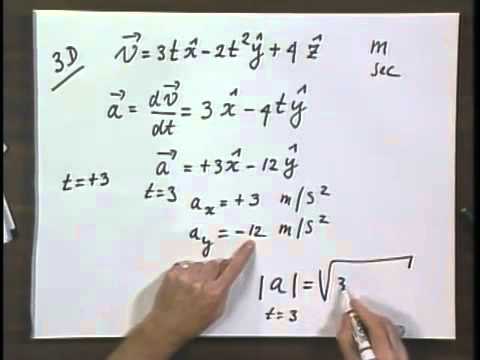 3D v⃗ = 3t x̂ − 2t² ŷ + 4 ẑ m
sec
a⃗ = dv⃗/dt = 3 x̂ − 4t ŷ
t = +3 a⃗ = +3x̂ − 12ŷ
t = 3
aₓ = +3 m/s²
a_y = −12 m/s²
|a| = √3
t = 3